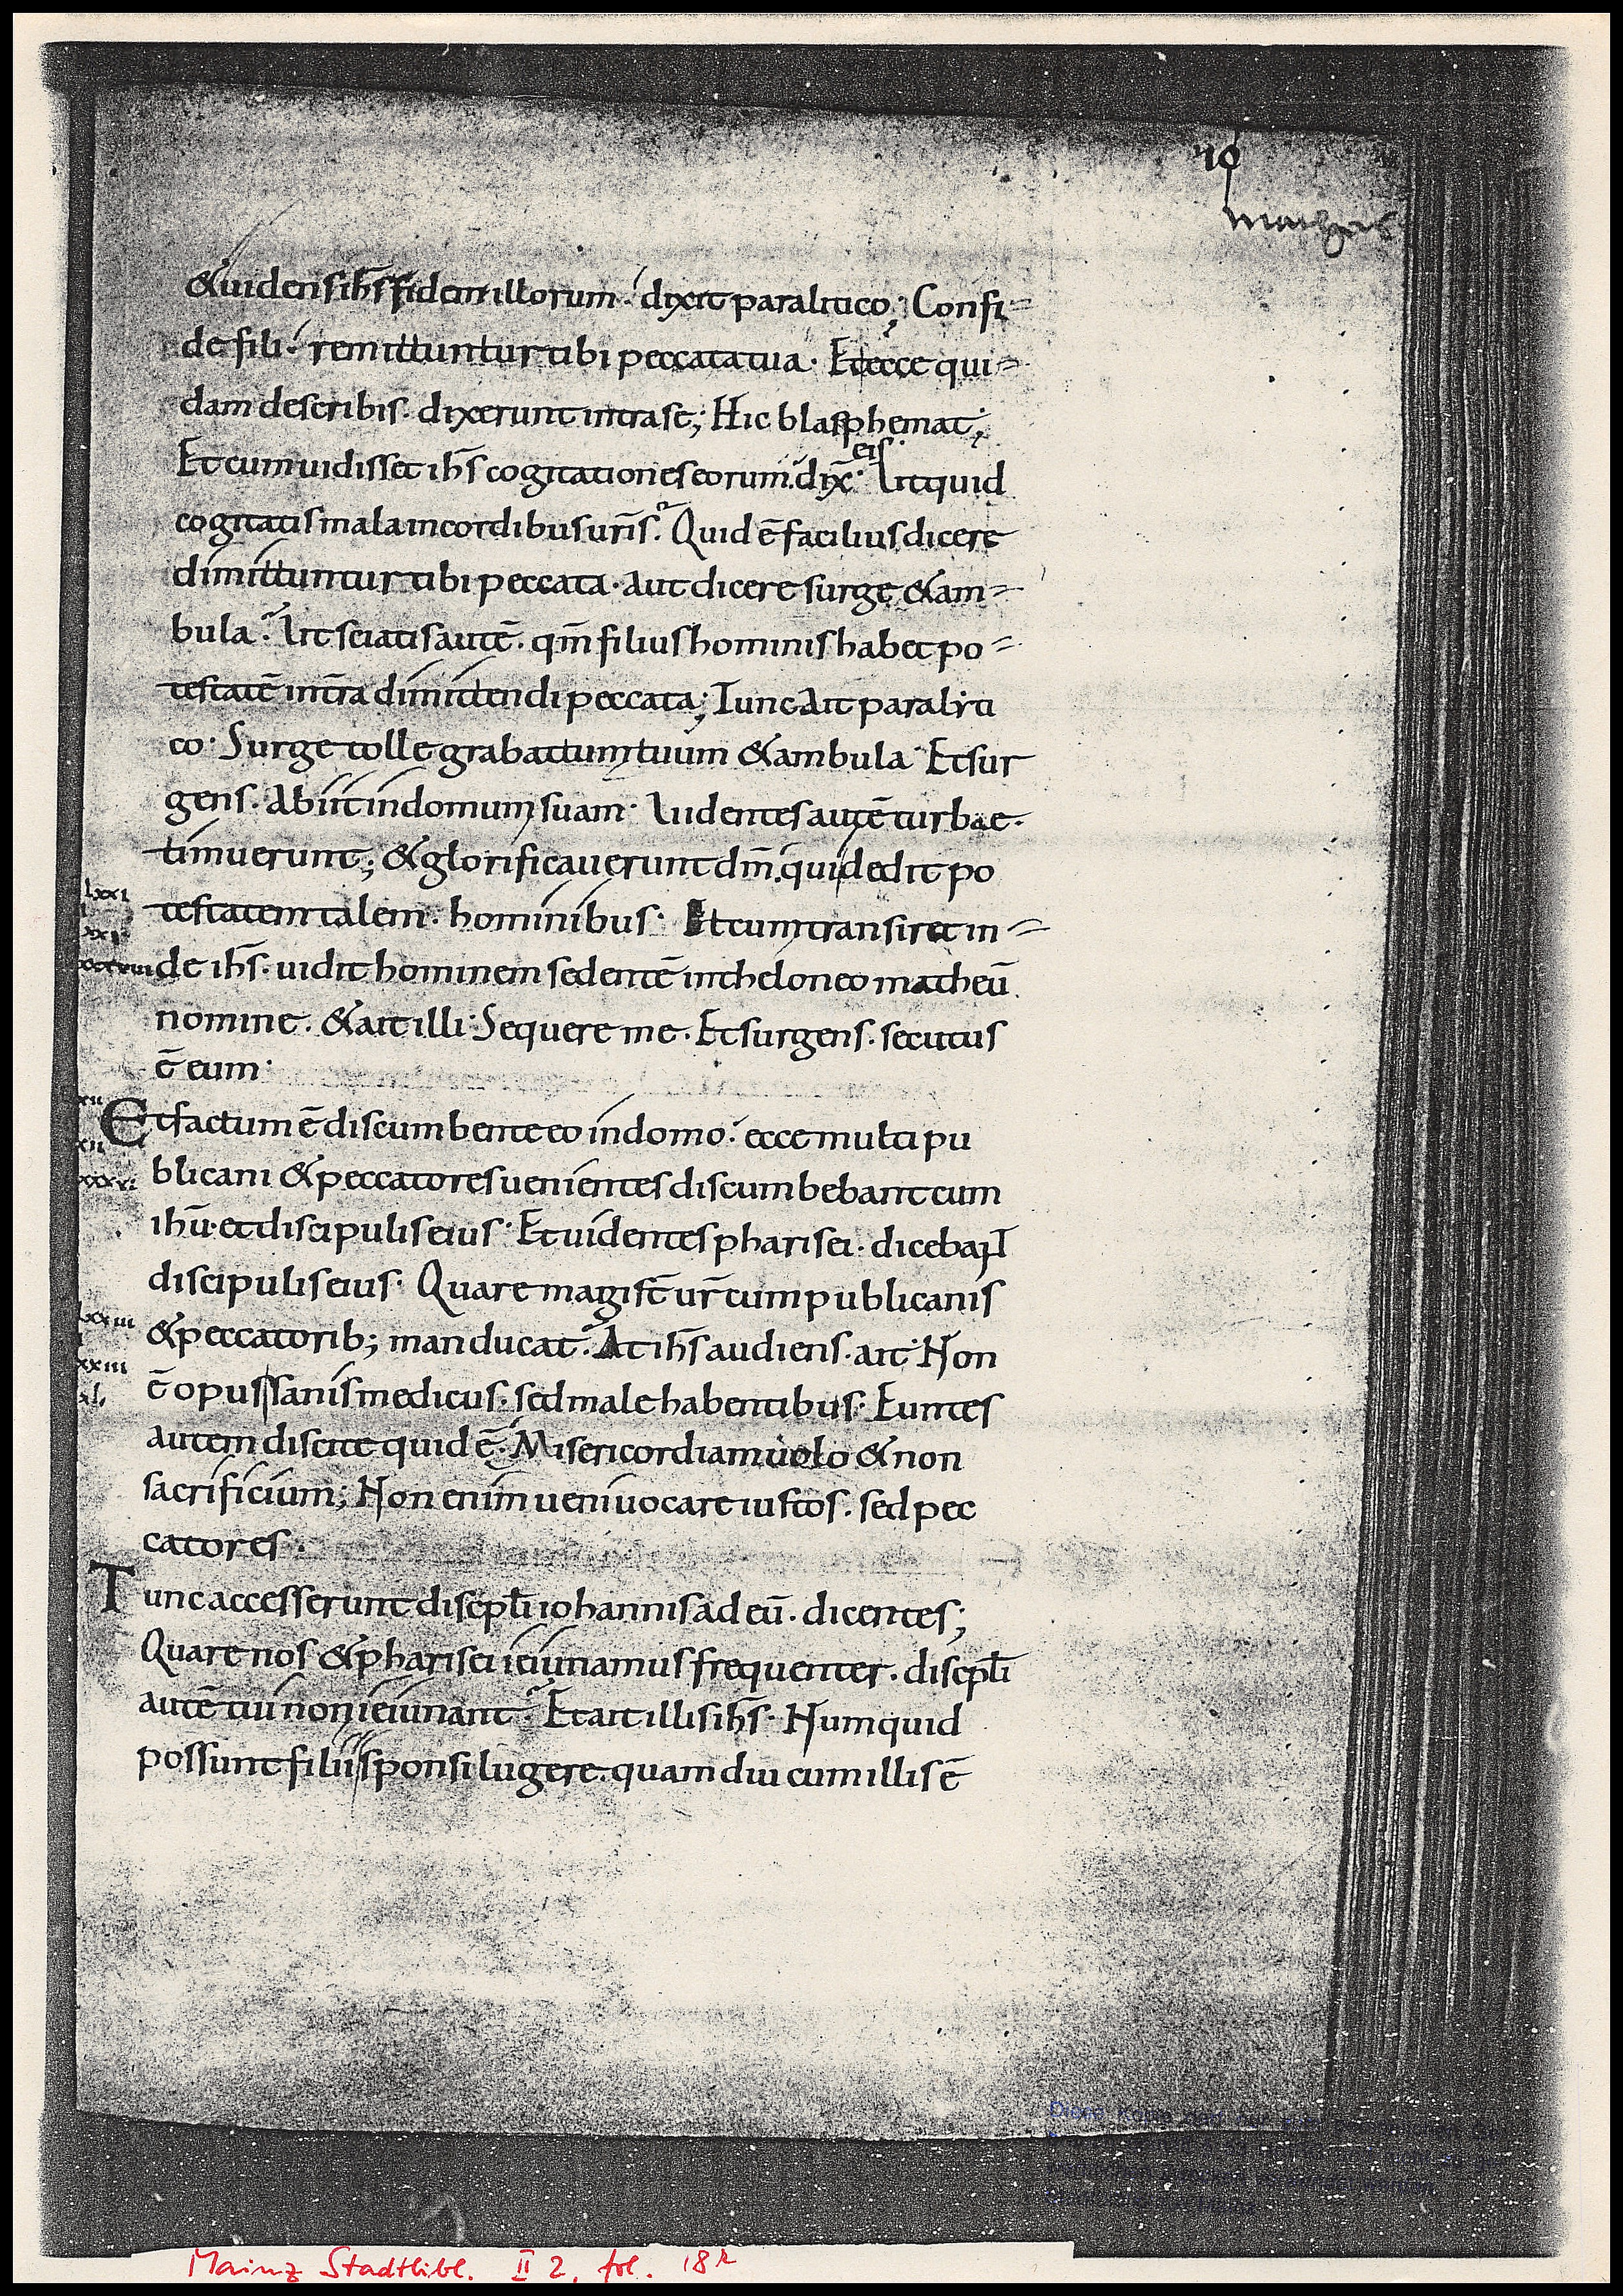 10
&uidens ih̅s fidem illorum. dixit paralitico; Confi-
de fili. remittuntur tibi peccata tua. Et ecce qui-
dam de scribis. dixerunt intra se; Hic blasphemat;
eis
Et cum uidisset ih̅s cogitationes eorum. dix̅. Vt quid
cogitatis mala in cordibus ur̅is? Quid e̅ facilius dicere
dimittuntur tibi peccata. aut dicere surge & am-
bula? Vt sciatis aute̅. qm̅ filius hominis habet po-
testate̅ in t̅ra dimittendi peccata; Tunc ait paralyti
co. Surge tolle grabattum tuum & ambula. Et sur
gens. abiit in domum suam. Videntes aute̅ turbae.
timuerunt; & glorificauerunt dm̅. qui dedit po
lxxi
testatem talem. hominibus. Et cum transiret in-
de ih̅s. uidit hominem sedente̅ in theloneo matheu̅
nomine. & ait illi. Sequere me. Et surgens. secutus
e̅ eum.
Et factum e̅ discumbente eo in domo. ecce multi pu
blicani & peccatores uenientes discumbebant cum
ihu̅. et discipulis eius. Et uidentes pharisei. dicebant
discipulis eius. Quare magist̅ ur̅ cum publicanis
lxxiii
& peccatorib; manducat? At ih̅s audiens. ait. Non
xxiii
e̅ opus sanis medicus. sed male habentibus. Euntes
xl,
autem discite quid e̅. Misericordiam uolo & non
sacrificium; Non enim ueni uocare iustos. sed pec
catores.
Tunc accesserunt discipl̅i iohannis ad eu̅. dicentes;
Quare nos & pharisei ieiunamus frequenter. discipl̅i
aute̅ tui non ieiunant? Et ait illis ih̅s. Numquid
possunt filii sponsi lugere. quam diu cum illis e̅
Mainz Stadtbibl. II 2, fol. 18r